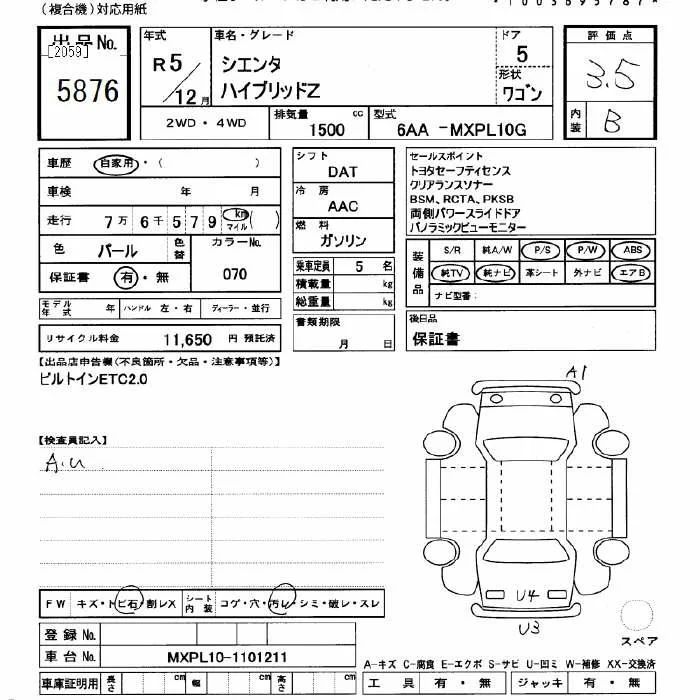 (複合機)対応用紙
出品No.
[2059]
5876
年式
R 5
12 月
車名・グレード
シエンタ
ハイブリッドZ
ドア
5
形状
ワゴン
評価点
3.5
内装
B
2WD・4WD
排気量
cc
1500
型式
6AA -MXPL10G
車歴
自家用・( )
車検 年 月
走行 7万 6千 5 7 9 km マイル ( )
色 パール
色替
カラーNo.
070
保証書 有・無
シフト
DAT
冷房
AAC
燃料
ガソリン
乗車定員 5 名
積載量 kg
総重量 kg
セールスポイント
トヨタセーフティセンス
クリアランスソナー
BSM、RCTA、PKSB
両側パワースライドドア
パノラミックビューモニター
装備品
S/R 純A/W P/S P/W ABS
純TV 純ナビ 革シート 外ナビ エアB
ナビ型番:
モデル年式 年 ハンドル 左・右 ディーラー・並行
リサイクル料金 11,650 円 預託済
書類期限
月 日
後日品
保証書
【出品店申告欄(不良箇所・欠品・注意事項等)】
ビルトインETC2.0
【検査員記入】
A.U
A1
U4
U3
スペア
FW キズ・トビ石・割レX シート内装 コゲ・穴・汚レ・シミ・破レ・スレ
登録No.
車台No. MXPL10-1101211
車庫証明用 長さ cm 幅 cm 高さ cm
A-キズ C-腐食 E-エクボ S-サビ U-凹ミ W-補修 XX-交換済
工具 有・無 ジャッキ 有・無